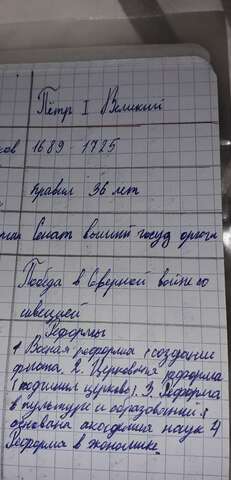 Пётр I Великий
ков 1689 - 1725
правил 36 лет
Сенат высший госуд орган
Победа в Северной войне со
швецией
Реформы
1 Военая реформа (создание
флота. 2. Церковная реформа
(подчинил церковь). 3. Реформа
в культуре и образовании (
основана академия наук 4
Реформа в экономике.